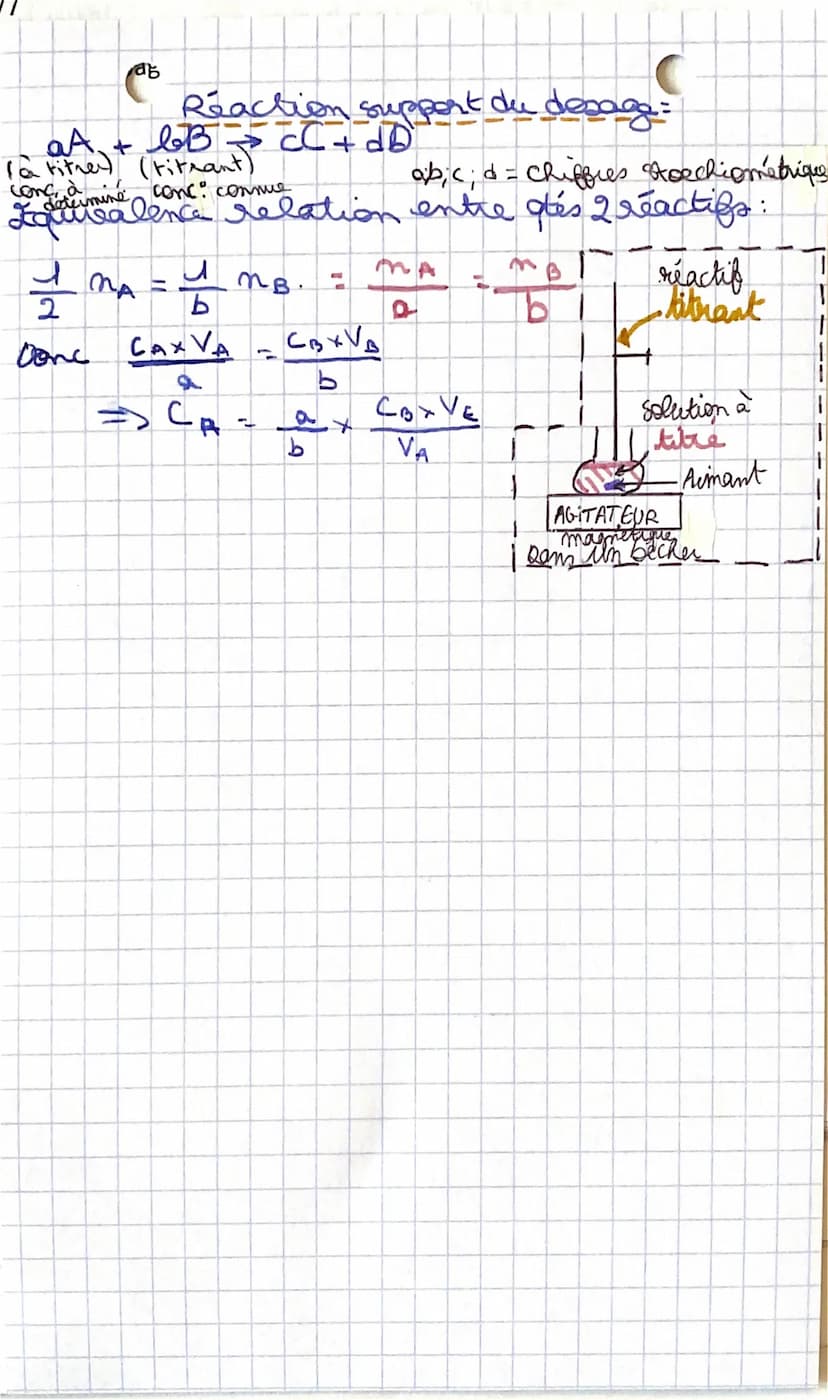 Réaction support du dosage:
aA + bB → cC + dD
(à titrer) (titrant)
conc. à déterminé conc° connue
a,b,c,d = chiffres stoechiométriques
Equivalence relation entre qtés 2 réactifs :
1/2 nA = 1/b nB. = nA/a = nB/b
Donc CA×VA/a = CB×VB/b
=> CA = a/b × CB×VE/VA
réactif
titrant
solution à
titré
Aimant
AGiTATEUR
magnétique
Dans un bécher